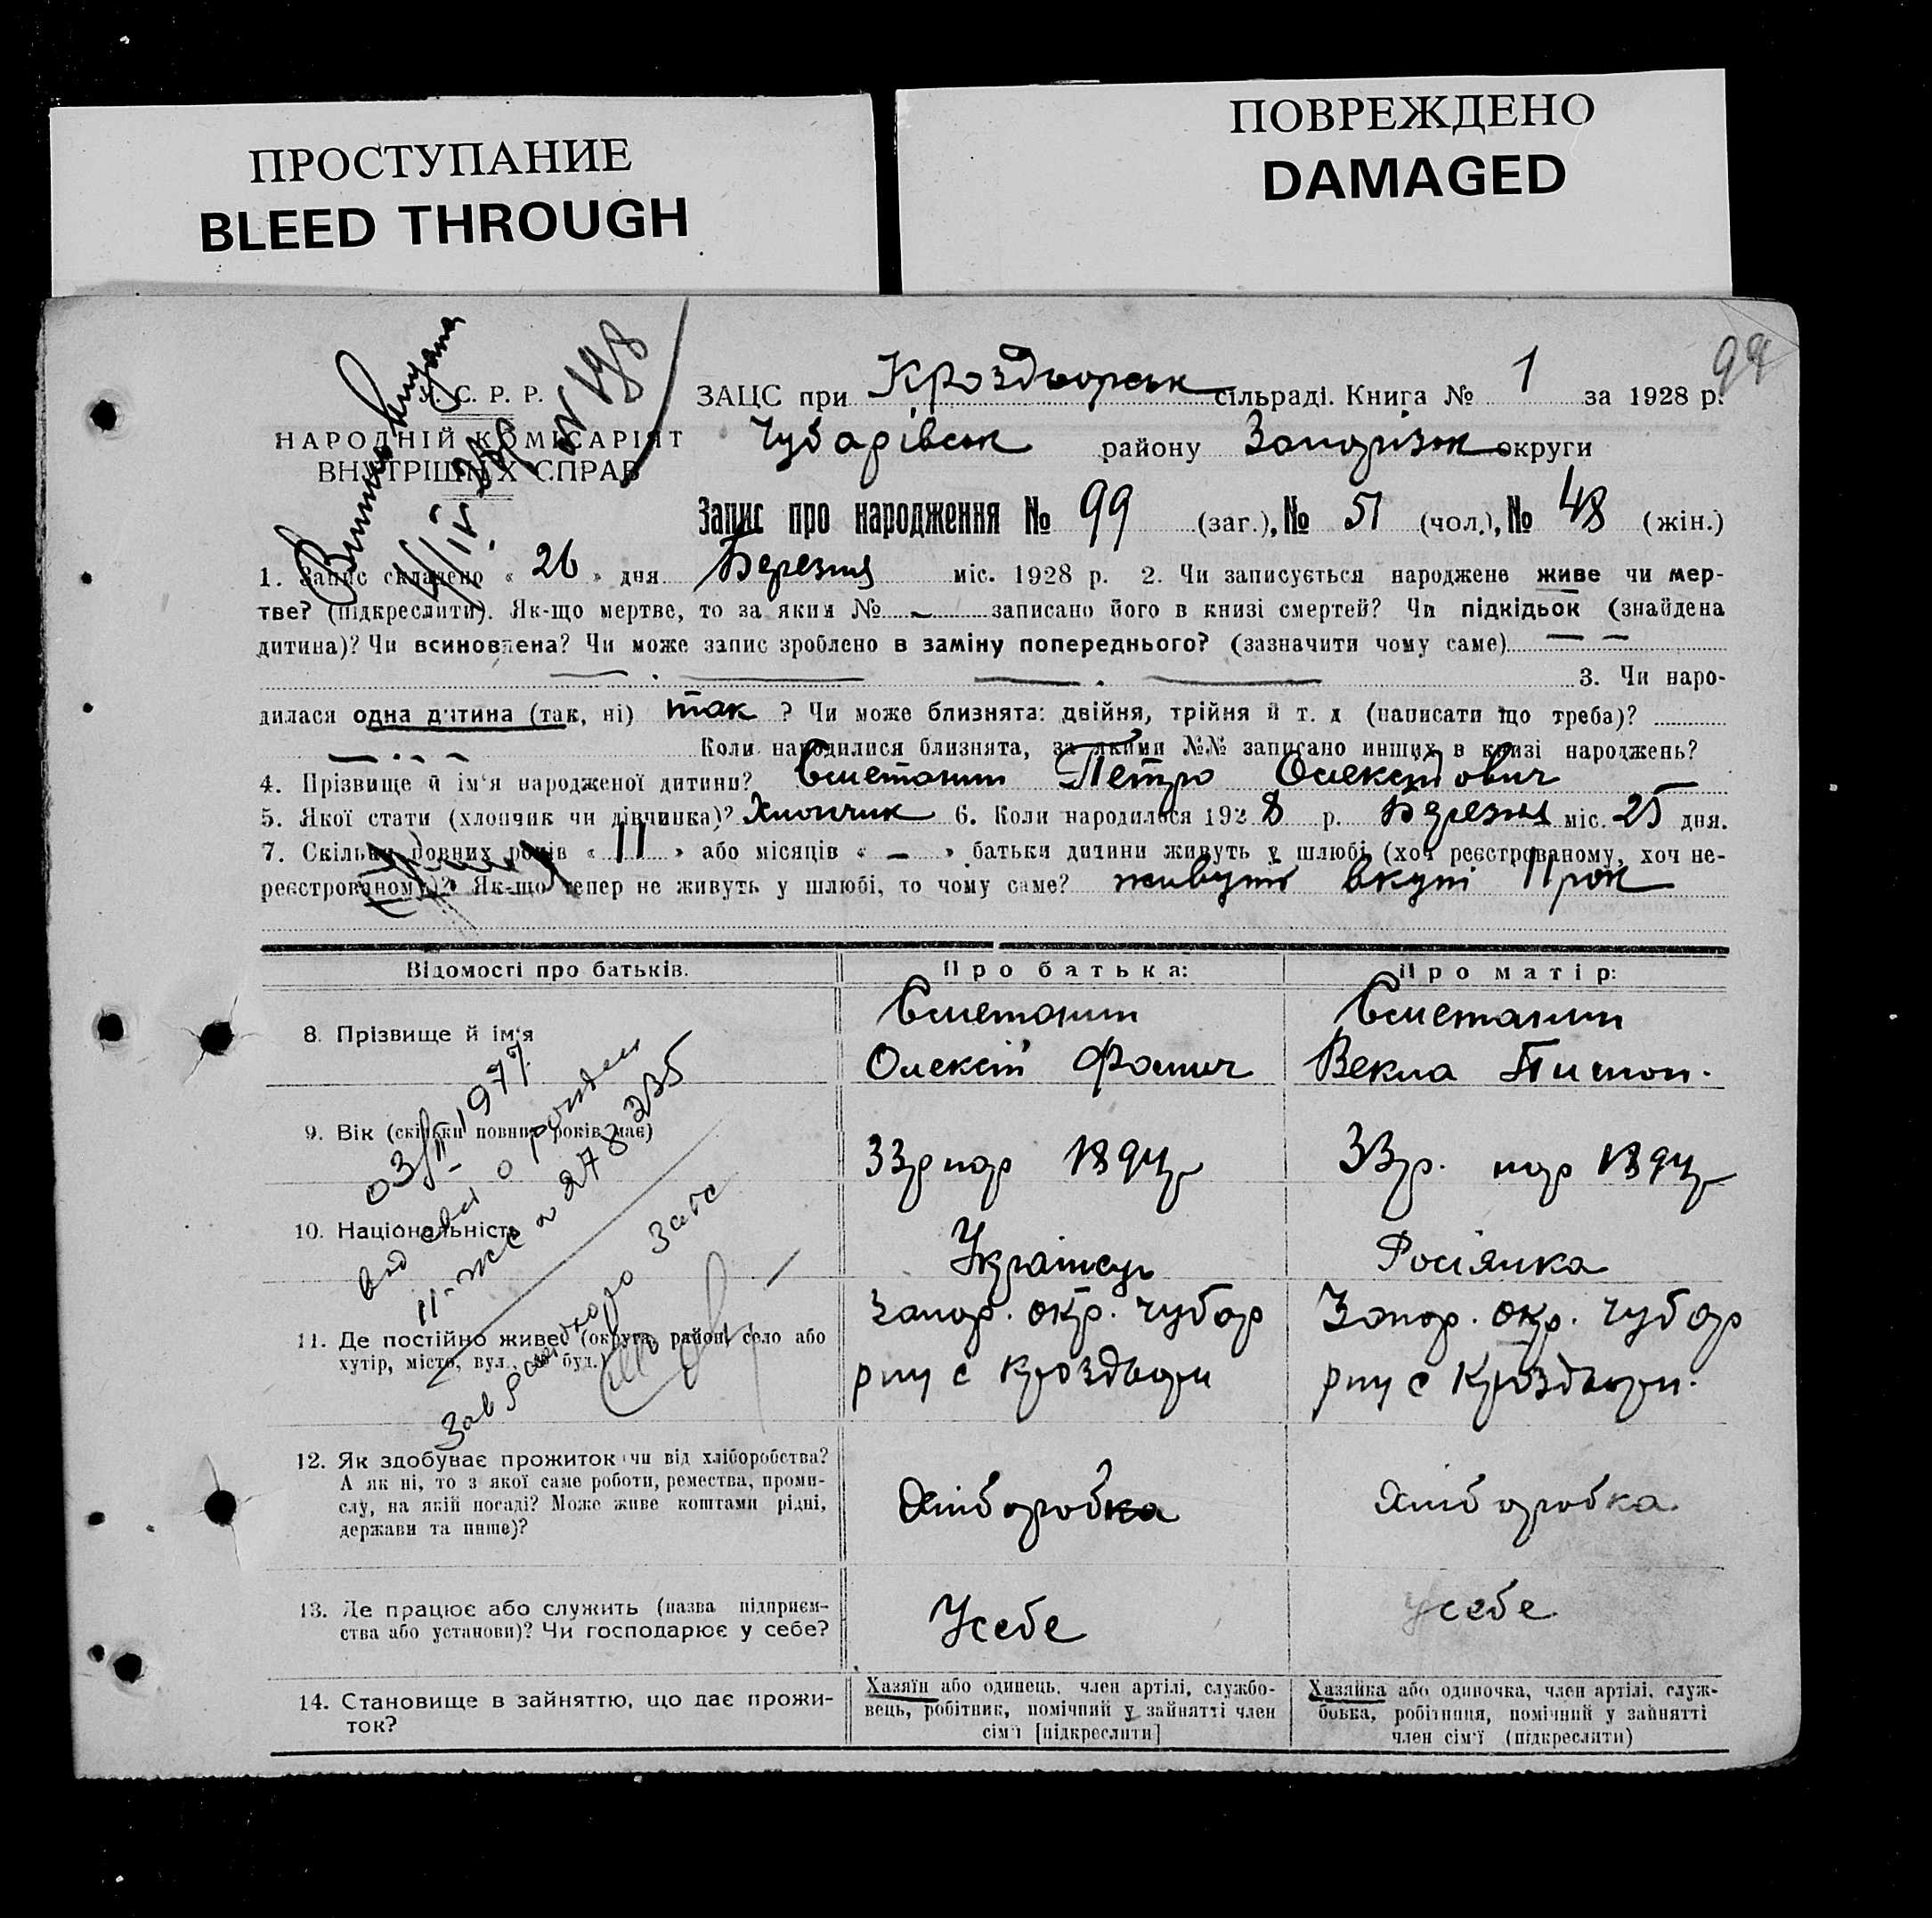 ПРОСТУПАНИЕ
BLEED THROUGH
ПОВРЕЖДЕНО
DAMAGED
99
У. С. Р. Р.
НАРОДНІЙ КОМІСАРІЯТ
ВНУТРІШНІХ СПРАВ
№ 198
ЗАЦС при Кроздворськ сільраді. Книга № 1 за 1928 р.
Чубарівськ району Запорізьк округи
Запис про народження № 99 (заг.), № 51 (чол.), № 48 (жін.)
1. Запис складено « 26 » дня Березня міс. 1928 р. 2. Чи записується народжене живе чи мер-
тве? (підкреслити). Як-що мертве, то за яким № – записано його в книзі смертей? Чи підкідьок (знайдена
дитина)? Чи всиновлена? Чи може запис зроблено в заміну попереднього? (зазначити чому саме) — —
3. Чи наро-
дилася одна дитина (так, ні) так ? Чи може близнята: двійня, трійня й т. д (написати що треба)?
Коли народилися близнята, за якими №№ записано инших в книзі народжень?
4. Прізвище й ім'я народженої дитини? Сметанин Петро Олексійович
5. Якої стати (хлопчик чи дівчинка)? Хлопчик 6. Коли народилося 1928 р. Березня міс. 25 дня.
7. Скільки повних років « 11 » або місяців « – » батьки дитини живуть у шлюбі (хоч реєстрованому, хоч не-
реєстрованому)? Як-що тепер не живуть у шлюбі, то чому саме? живуть вкупі 11 рок
Відомості про батьків.
Про батька:
Про матір:
8. Прізвище й ім'я
Сметанин
Олексій Фомич
Сметанин
Векла Тимоп.
03/II-1977
9. Вік (скільки повних років має)
33р нар 1894р
33р. нар 1894р
№ 278235
10. Національність
Українець
Росіянка
11. Де постійно живе (округа, район, село або
хутір, місто, вул. № буд.)
Запор. окр. Чубар
рну с Кроздвори
Запор. окр. Чубар
рну с Кроздвори.
12. Як здобуває прожиток чи від хліборобства?
А як ні, то з якої саме роботи, ремества, проми-
слу, на якій посаді? Може живе коштами рідні,
держави та инше)?
Хліборобка
Хліборобка.
13. Де працює або служить (назва підприєм-
ства або установи)? Чи господарює у себе?
Усебе
Усебе
14. Становище в зайняттю, що дає прожи-
ток?
Хазяїн або одинець, член артілі, службо-
вець, робітник, помічний у зайнятті член
сім'ї [підкреслити]
Хазяйка або одиночка, член артілі, служ-
бовка, робітниця, помічний у зайнятті
член сім'ї (підкреслити)